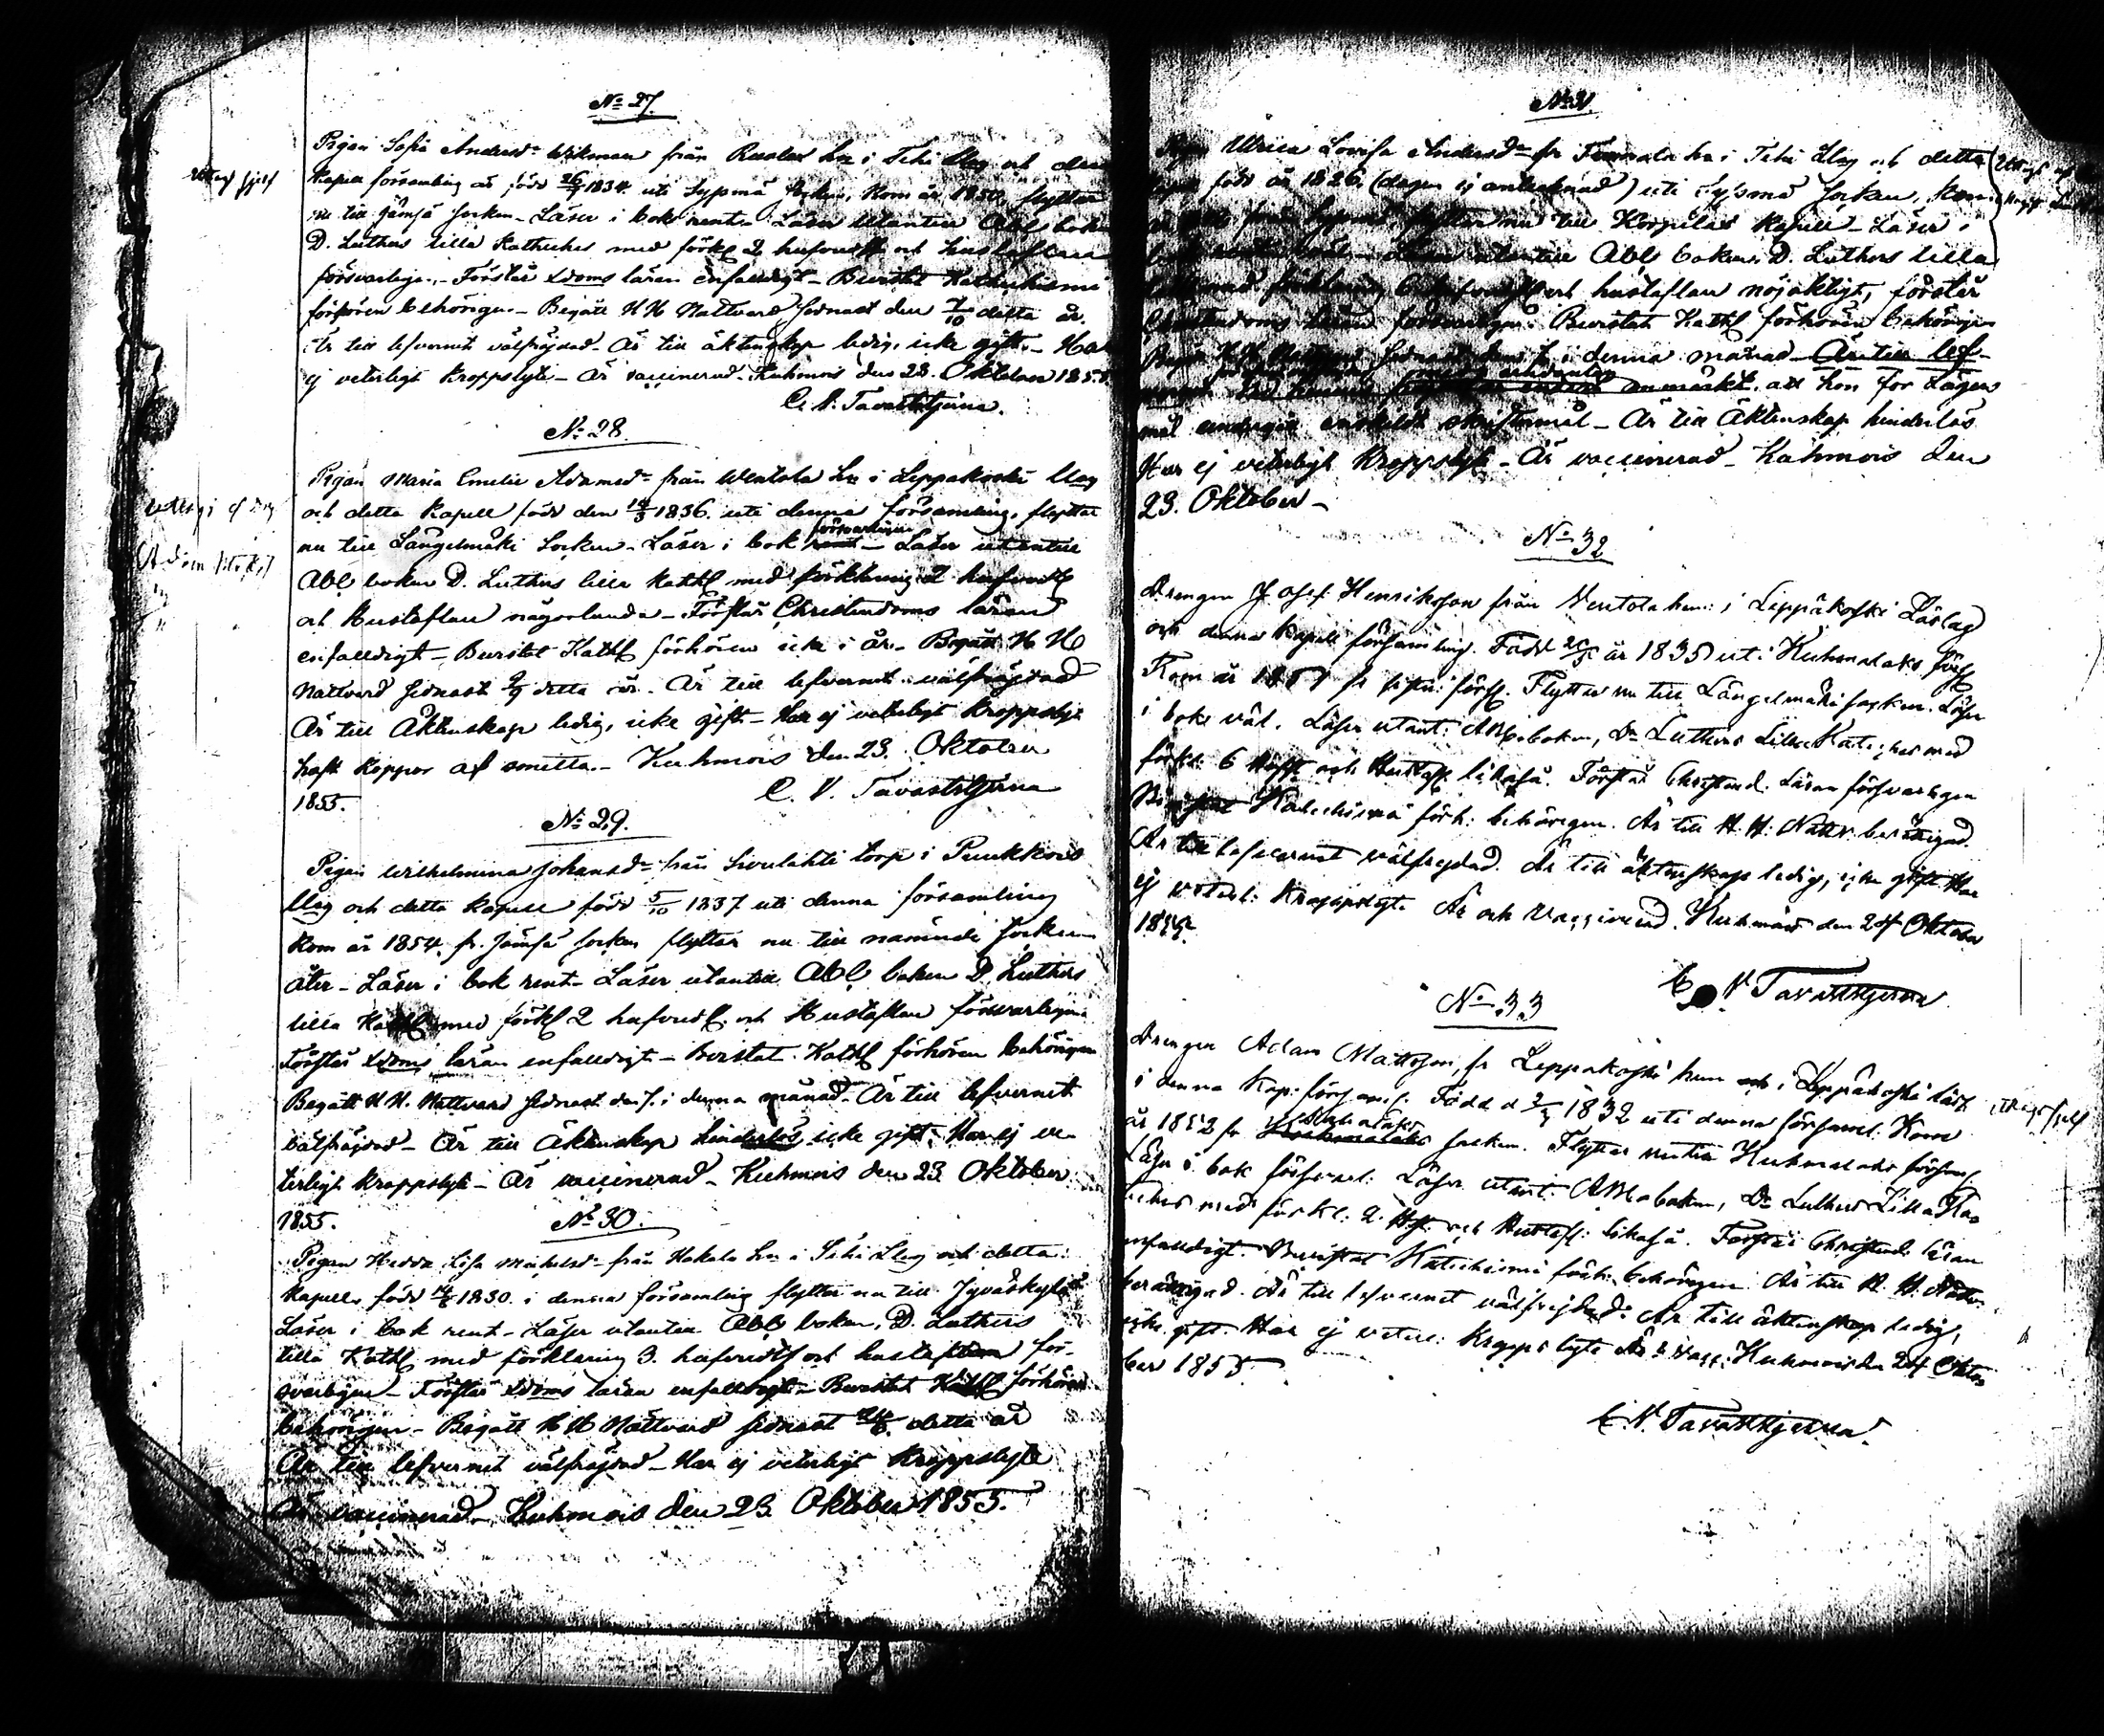 No 27.
Pigan Sofia Andersdr Wikman från Ruolas hn i Tehi llag och detta
kapell församling är född 26/9 1834 uti Sysmä Socken, kom år 1850, flyttar
nu till Jämsä Socken - Läser i bok rent - Läser utantill Abc boken
D. Luthers lilla Katekes med förkl 2 hufvudst och hustaflan
försvarligen - Förstår Xdoms läran enfaldigt - Bevistat Katechismi
förhören behörigen - Begått H H Nattvard sednast den 7/10 detta år
Är till lefvernet välfräjdad - Är till äktenskap ledig, icke gift - Har
ej veterligt kroppslyte - Är vaccinerad - Kuhmois den 23. Oktober 1855.
C. N. Tavaststjerna.
No 28.
Pigan Maria Emelie Adamsdr från Wentola hn i Leppäkoski llag
och detta kapell född den 3 1836. uti denna församling, flyttar
nu till Längelmäki Socken - Läser i bok försvarligen - Läser utantill
Abc boken D. Luthers lilla Kathl med förklaring 2 hufvudst
och hustaflan någorlunda - Förstår Christendoms läran
enfaldigt - Bevistat Kathl förhören icke i år - Begått H H
Nattvard sednast 9 detta år. Är till lefvernet välfräjdad
Är till Äktenskap ledig, icke gift - Har ej veterligt kroppslyte
haft koppor af smitta - Kuhmois den 23. Oktober
1855.
C. N. Tavaststjerna
No 29.
Pigan Wilhelmina Johansdr från Sivulahti torp i Puukkois
llag och detta kapell född 5/10 1837 uti denna församling
kom år 1854. fr. Jämsä Socken flyttar nu till nämnde Socken
åter - Läser i bok rent - Läser utantill Abc boken D. Luthers
lilla Kathl med förkl 2 hufvudst och Hustaflan försvarligen
Förstår Xdoms läran enfaldigt - Bevistat Kathl förhören behörigen
Begått H H. Nattvard sednast den 7. i denna månad - Är till lefvernet
välfräjdad - Är till Äktenskap hinderlös icke gift. Har ej ve-
terligt kroppslyte - Är vaccinerad - Kuhmois den 23 Oktober
1855.
No 30.
Pigan Hedda Lisa Mickelsdr från Hakala hn i Tehi Llag och detta
kapell född 1830. i denna församling flyttar nu till Jyväskylä
Läser i bok rent - Läser utantill Abc boken, D. Luthers
lilla Kathl med förklaring 3. hufvudst och hustaflan för-
svarligen - Förstår Xdoms läran enfaldigt - Bevistat Kathl förhören
behörigen - Begått H H Nattvard sednast detta år
Är till lefvernet välfräjdad - Har ej veterligt kroppslyte
Är vaccinerad - Kuhmois den 23 Oktober 1855.
No 31.
Ulrica Lovisa Andersdr fr Tommola hn i Tehi Llag och detta
född år 1826 (dagen ej antecknad) uti Sysmä Socken, kom
flyttar nu till Korpilax kapell - Läser i
utantill Abc boken D. Luthers lilla
med förklaring 6 hufvudst och hustaflan nöjaktigt, förstår
Christendoms läran försvarligen. Bevistat Kathl förhören behörigen
Begått H. H. Nattvard sednast den 7 i denna månad - Är till lef-
anmärkt att hon för Läger
mål undergått enskildt skriftermål - Är till Äktenskap hinderlös
Har ej veterligt kroppslyte - Är vaccinerad - Kuhmois den
23. Oktober -
No 32
Drengen Josef Henriksson från Ventola hem: i Leppäkoski Läslag
och denna kapell församling. Född år 1835 uti Kuhmalaks förs
Kom år fr förs. Flyttar nu till Längelmäki socken. Läser
i bok väl. Läser utant: Abc-boken, Dr Luthers Lilla Kateches med
förkl: 6 Hufst och Hustafl likaså. Förstår Christend. Läran försvarligen
Katechismi förh: behörigen. Är till H. H: Nattv. berättigad.
Är till lefvernet välfrejdad. Är till äktenskap ledig, icke gift Har
ej veterl: kroppslyte Är och Vaccinerad. Kuhmois den 24 Oktober
1855.
C. N Tavaststjerna
No 33
Drengen Adam Mattsson, fr Leppäkoski hem i Leppäkoski läsl
i denna Kap: församl. Född d 1832 uti denna församl: Kom
år 1852 fr Kuhmalaks socken. Flyttar nu till Kuhmalaks församl
Läser i bok försvarl: Läser utant. Abc boken, Dr Luthers Lilla Ka-
teches med förkl: 2. Hfst: och Hustafl: likaså. Förstår Christend: läran
enfaldigt. Bevistat Katechismi förh. behörigen Är till H. H. Nattv.
berättigad. Är till lefvernet välfrejdad. Är till äktenskap ledig,
icke gift. Har ej veterl: kroppslyte Är & Vacc: Kuhmois den 24 Okto-
ber 1855
C. N. Tavaststjerna.